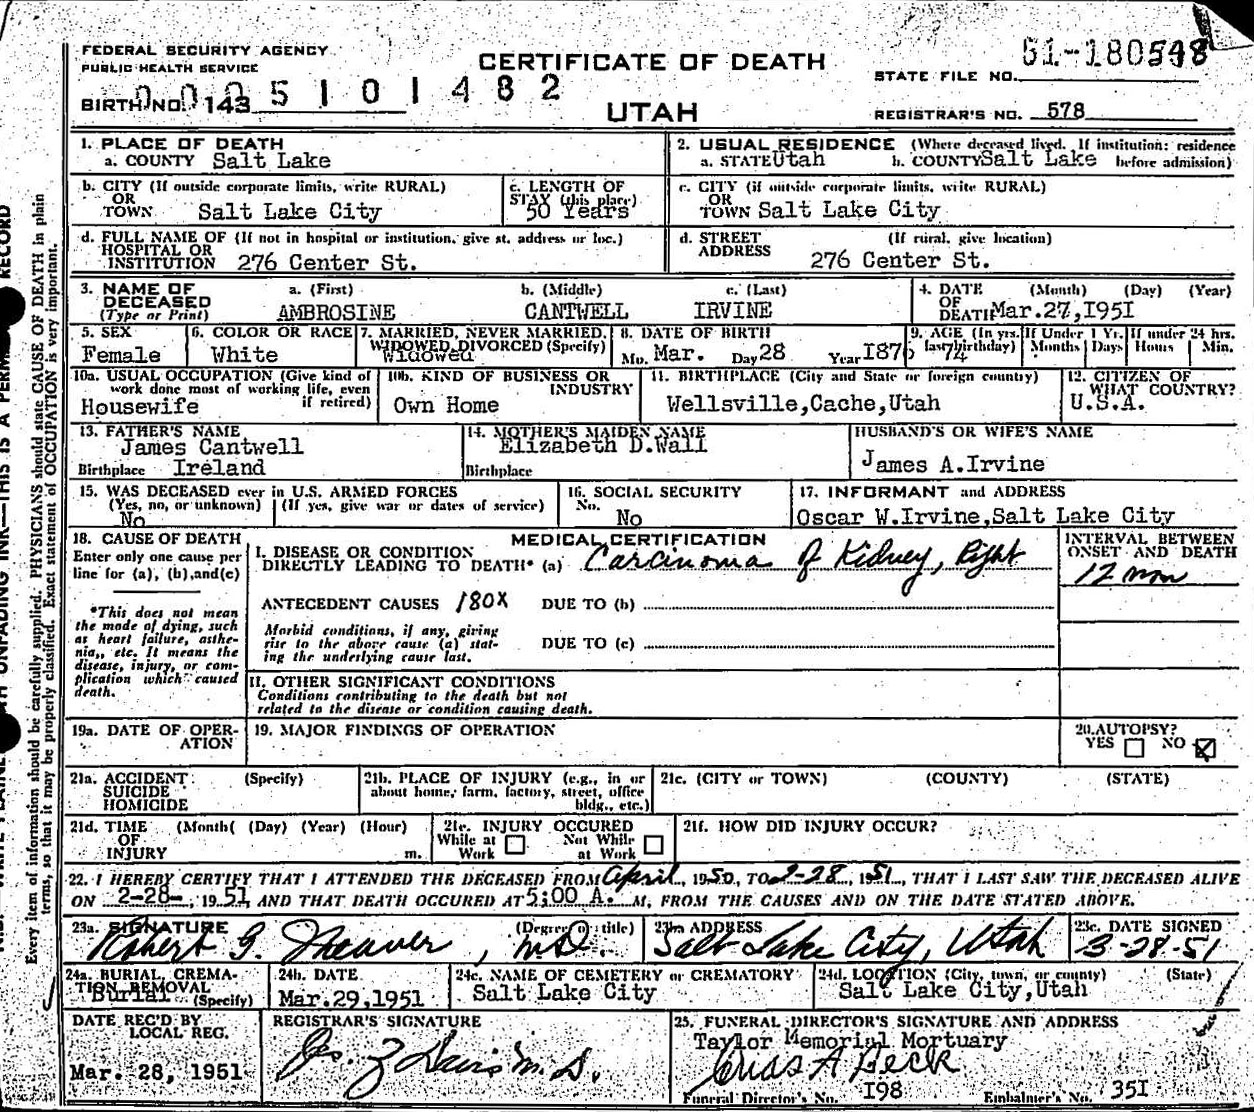 FEDERAL SECURITY AGENCY
PUBLIC HEALTH SERVICE
CERTIFICATE OF DEATH
STATE FILE NO. 51-180598
BIRTH NO. 143
0005101482
UTAH
REGISTRAR'S NO. 578
1. PLACE OF DEATH
a. COUNTY Salt Lake
2. USUAL RESIDENCE (Where deceased lived. If institution: residence before admission)
a. STATE Utah b. COUNTY Salt Lake
b. CITY (If outside corporate limits, write RURAL)
OR
TOWN Salt Lake City
c. LENGTH OF
STAY (this place)
50 Years
c. CITY (if outside corporate limits, write RURAL)
OR
TOWN Salt Lake City
d. FULL NAME OF (If not in hospital or institution, give st. address or loc.)
HOSPITAL OR
INSTITUTION 276 Center St.
d. STREET (If rural, give location)
ADDRESS
276 Center St.
3. NAME OF
DECEASED
(Type or Print)
a. (First) b. (Middle) c. (Last)
AMBROSINE CANTWELL IRVINE
4. DATE (Month) (Day) (Year)
OF
DEATH Mar.27,1951
5. SEX
Female
6. COLOR OR RACE
White
7. MARRIED, NEVER MARRIED,
WIDOWED, DIVORCED (Specify)
Widowed
8. DATE OF BIRTH
Mo. Mar. Day 28 Year 1876
9. AGE (In yrs. last birthday)
74
If Under 1 Yr.
Months Days
If under 24 hrs.
Hours Min.
10a. USUAL OCCUPATION (Give kind of
work done most of working life, even
if retired)
Housewife
10b. KIND OF BUSINESS OR
INDUSTRY
Own Home
11. BIRTHPLACE (City and State or foreign country)
Wellsville,Cache,Utah
12. CITIZEN OF
WHAT COUNTRY?
U.S.A.
13. FATHER'S NAME
James Cantwell
Birthplace Ireland
14. MOTHER'S MAIDEN NAME
Elizabeth D.Wall
Birthplace
HUSBAND'S OR WIFE'S NAME
James A.Irvine
15. WAS DECEASED ever in U.S. ARMED FORCES
(Yes, no, or unknown) (If yes, give war or dates of service)
No
16. SOCIAL SECURITY
No.
No
17. INFORMANT and ADDRESS
Oscar W.Irvine,Salt Lake City
18. CAUSE OF DEATH
Enter only one cause per
line for (a), (b), and (c)
*This does not mean
the mode of dying, such
as heart failure, asthe-
nia,, etc. It means the
disease, injury, or com-
plication which caused
death.
MEDICAL CERTIFICATION
I. DISEASE OR CONDITION
DIRECTLY LEADING TO DEATH* (a) Carcinoma of Kidney, Right
INTERVAL BETWEEN
ONSET AND DEATH
12 mon
ANTECEDENT CAUSES 180X DUE TO (b)
Morbid conditions, if any, giving
rise to the above cause (a) stat-
ing the underlying cause last.
DUE TO (c)
II. OTHER SIGNIFICANT CONDITIONS
Conditions contributing to the death but not
related to the disease or condition causing death.
19a. DATE OF OPER-
ATION
19. MAJOR FINDINGS OF OPERATION
20. AUTOPSY?
YES NO
21a. ACCIDENT (Specify)
SUICIDE
HOMICIDE
21b. PLACE OF INJURY (e.g., in or
about home, farm, factory, street, office
bldg., etc.)
21c. (CITY or TOWN) (COUNTY) (STATE)
21d. TIME (Month( (Day) (Year) (Hour)
OF
INJURY m.
21e. INJURY OCCURED
While at Work Not While at Work
21f. HOW DID INJURY OCCUR?
22. I HEREBY CERTIFY THAT I ATTENDED THE DECEASED FROM April, 1950, TO 2-28, 1951, THAT I LAST SAW THE DECEASED ALIVE
ON 2-28-, 1951, AND THAT DEATH OCCURED AT 5:00 A. M, FROM THE CAUSES AND ON THE DATE STATED ABOVE.
23a. SIGNATURE (Degree or title)
Robert G. Weaver, M.D.
23b. ADDRESS
Salt Lake City, Utah
23c. DATE SIGNED
3-28-51
24a. BURIAL, CREMA-
TION REMOVAL
(Specify)
Burial
24b. DATE
Mar.29,1951
24c. NAME OF CEMETERY or CREMATORY
Salt Lake City
24d. LOCATION (City, town, or county) (State)
Salt Lake City,Utah
DATE REC'D BY
LOCAL REG.
Mar. 28, 1951
REGISTRAR'S SIGNATURE
25. FUNERAL DIRECTOR'S SIGNATURE AND ADDRESS
Taylor Memorial Mortuary
Chas A Beck
Funeral Director's No. 198 Embalmer's No. 351
Every item of information should be carefully supplied. PHYSICIANS should state CAUSE OF DEATH in plain
terms, so that it may be properly classified. Exact statement of OCCUPATION is very important.
UNFADING INK—THIS IS A RECORD